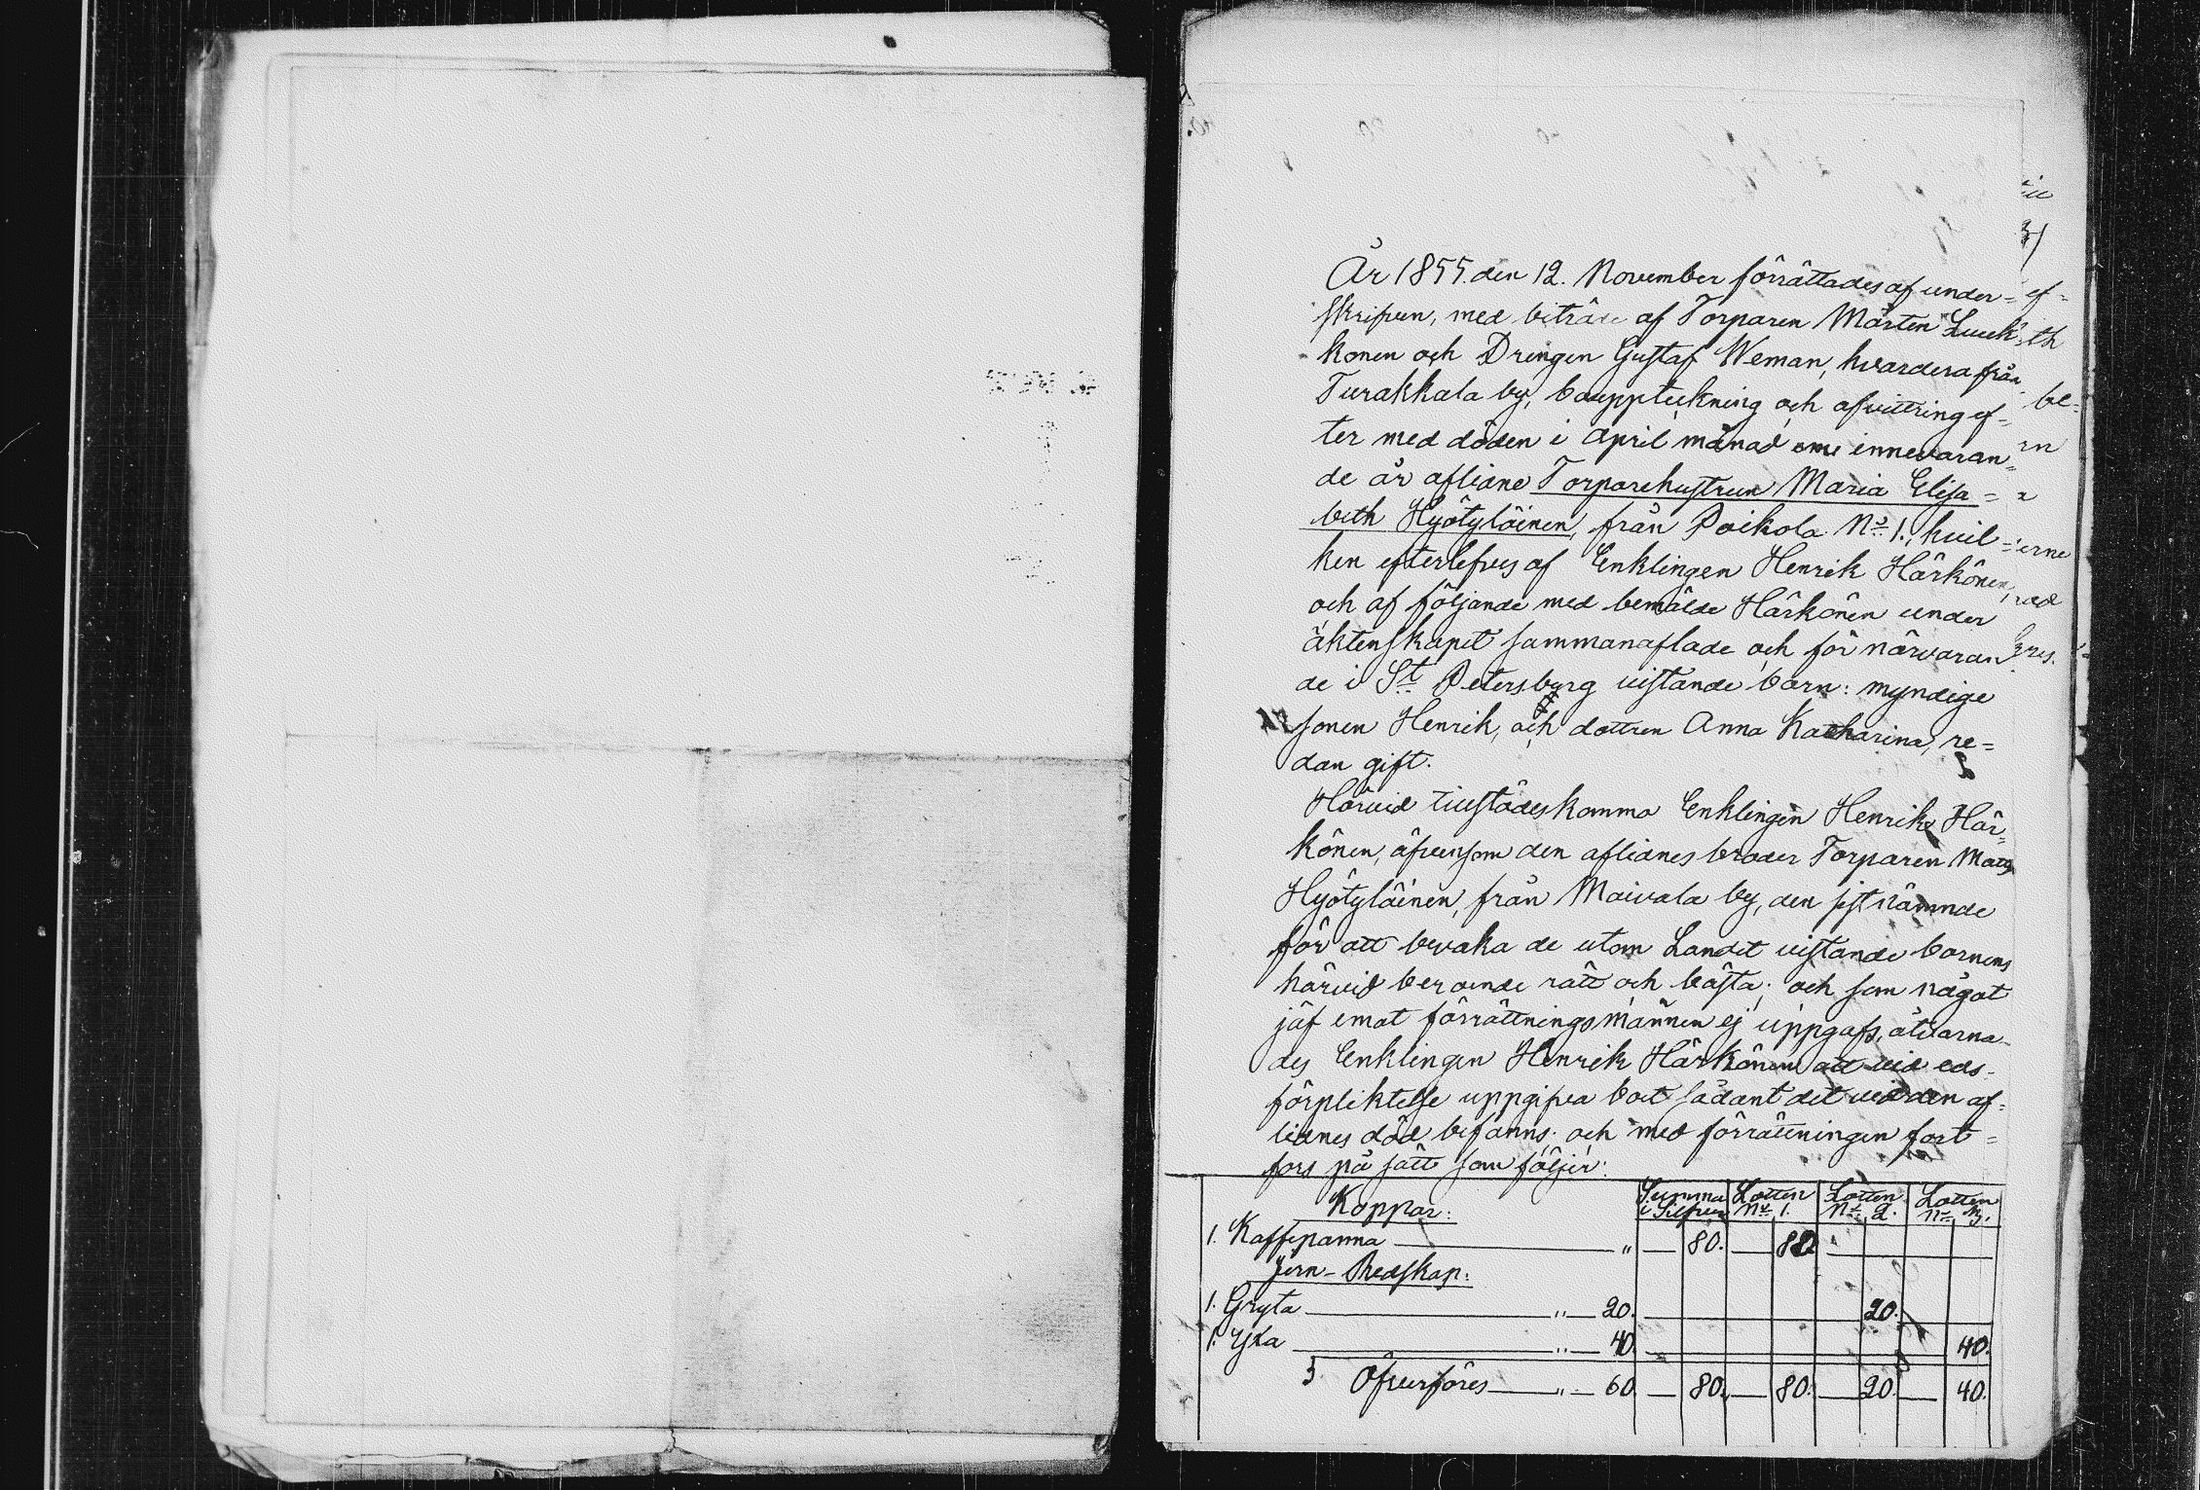 År 1855. den 12. November förrättades af under=
skrifven, med biträde af Torparen Mårten Luuk=
konen och Drengen Gustaf Weman, hvardera från
Turakkala by, bouppteckning och afvittring ef=
ter med döden i April månad innevaran=
de år aflidne Torparehustrun Maria Elisa=
beth Hyötyläinen, från Poikola No 1., hvil=
ken efterlefves af Enklingen Henrik Härkönen,
och af följande med bemälde Härkönen under
äktenskapet sammanaflade och för närvaran
de i St Petersburg vistande barn: myndige
sonen Henrik, och dottren Anna Katharina, re=
dan gift.
Härvid tillstädeskommo Enklingen Henrik Här=
könen, äfvensom den aflidnes broder Torparen Mats
Hyötyläinen, från Maivala by, den sistnämnde
för att bevaka de utom Landet vistande barnens
härvid beroende rätt och bästa; och som något
jäf emot förrättningsmännen ej uppgafs, åtvarna=
des Enklingen Henrik Härkönen att vid eds-
förpliktelse uppgifva boet sådant det vid den af=
lidnes död befanns; och med förrättningen fort=
fors på sätt som följer:
Koppar: Summa i Silfver Lotten No 1. Lotten No 2. Lotten No 3.
1. Kaffepanna " — 80. — 80.
Jern-Redskap:
1. Gryta " — 20. 20.
1. Yxa " — 40. 40.
Öfverföres " — 60. — 80. — 80. — 20. — 40.